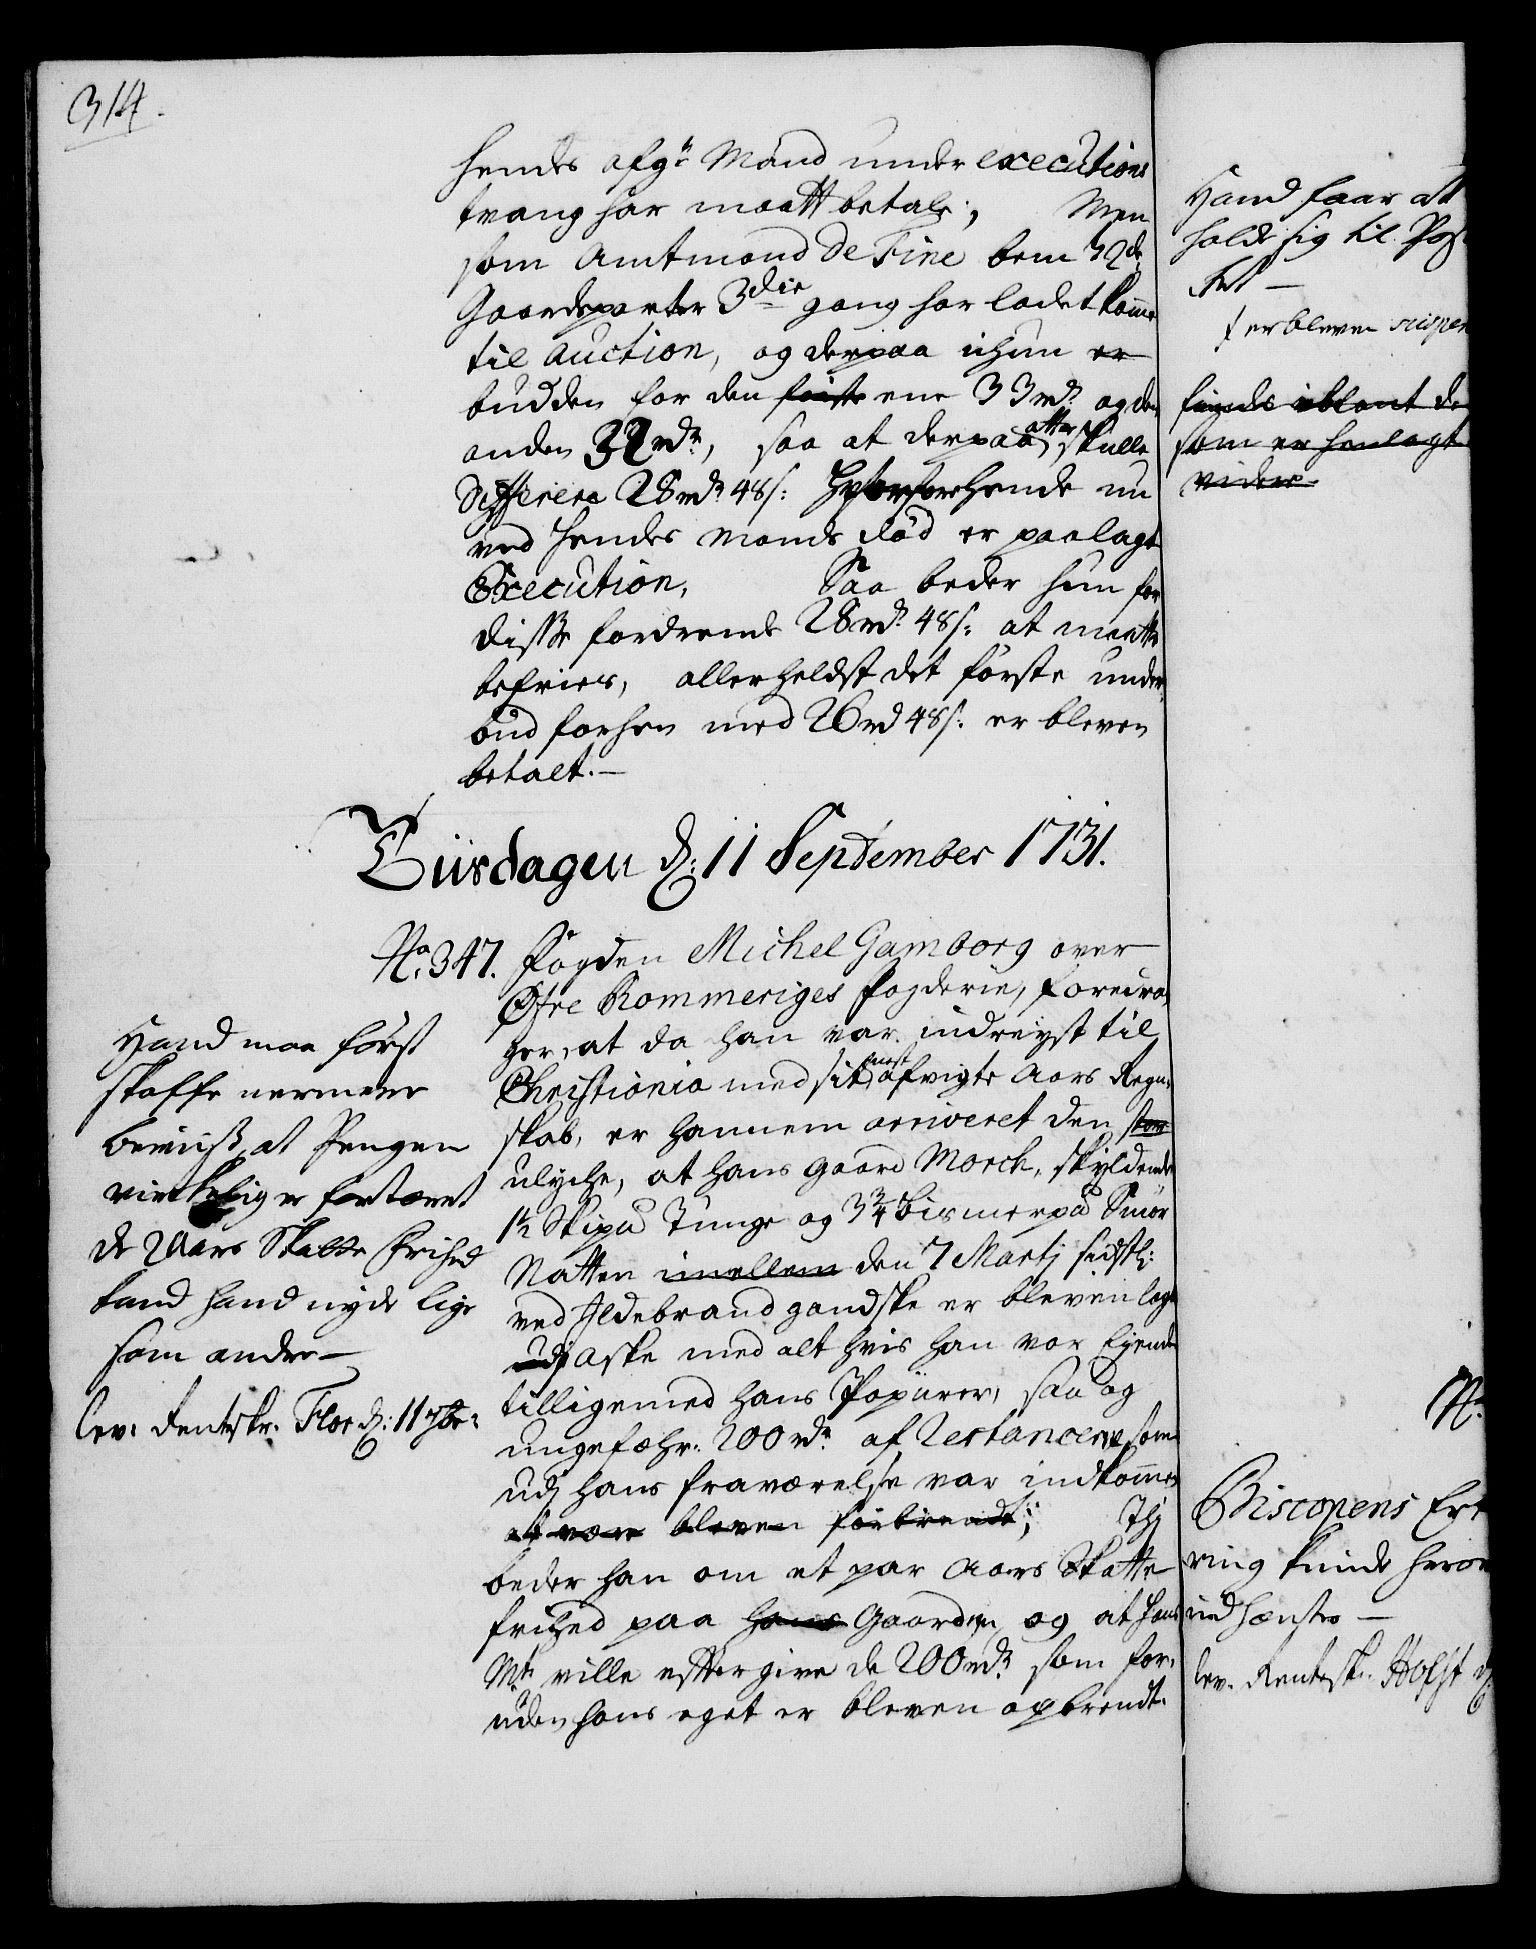 314.
hendes afg: Mand under executions
tvang har maatt betale; Men
som Amtmand De Fine bem
Gaardeparter 3die gang har ladet komme
til Auction, og derpaa ichun er
budden for den første ene 33 rdr og den
anden 32 rdr, saa at derpaa atter skulle
Differere 28 rdr 48 s: Hvorfor hende nu
ved hendes Mands død er paalagt
Execution, Saa beder hun for
disse fordrende 28 rdr 48 s: at maatte
befries, allerheldst det første under
bud forhen med 26 rd 48 s: er bleven
betalt.—
Tiisdagen d: 11 September 1731.
No. 347. Fogden Michel Gamborg over
Øfre Rommeriges fogderie, foredra,
ger, at da han var indreyst til
Christiania med sit nest afvigte Aars Regn,
skab, er hannem arriveret den stor
ulyche, at hans Gaard Morck, skyldende
1½ Skipd Tunge og 3¾ Bismerpd Smør
Natten imellem den 7 Martj sidstl:
ved Ildebrand gandske er bleven lagt
udj Aske med alt hvis han var Eyende
tilligemed hans Papiirer, saa og
ungefæhr: 200 rdr af Restancerne som
udj hans fraværelse var indkommen
at være bleven forbrendt; Thj
beder han om et par Aars Skatte
frihed paa hans Gaarden, og at hans
Mt ville efftergive de 200 rdr som for,
uden hans eget er bleven opbrendt.
Hand maa først
skaffe nermere
beviis, at Pengen
virkelig er fortæret
de 2 Aars Skatte frihed
kand hand nyde lige
som andre—
lev: Rentskr. Flor d: 11 7br:
Hand faar at
holde sig til
er bleven
findes iblant de
som er henlagt
videre
Biscopens
ring kunde
indhæntes —
lev. Renteskr. Holst d: